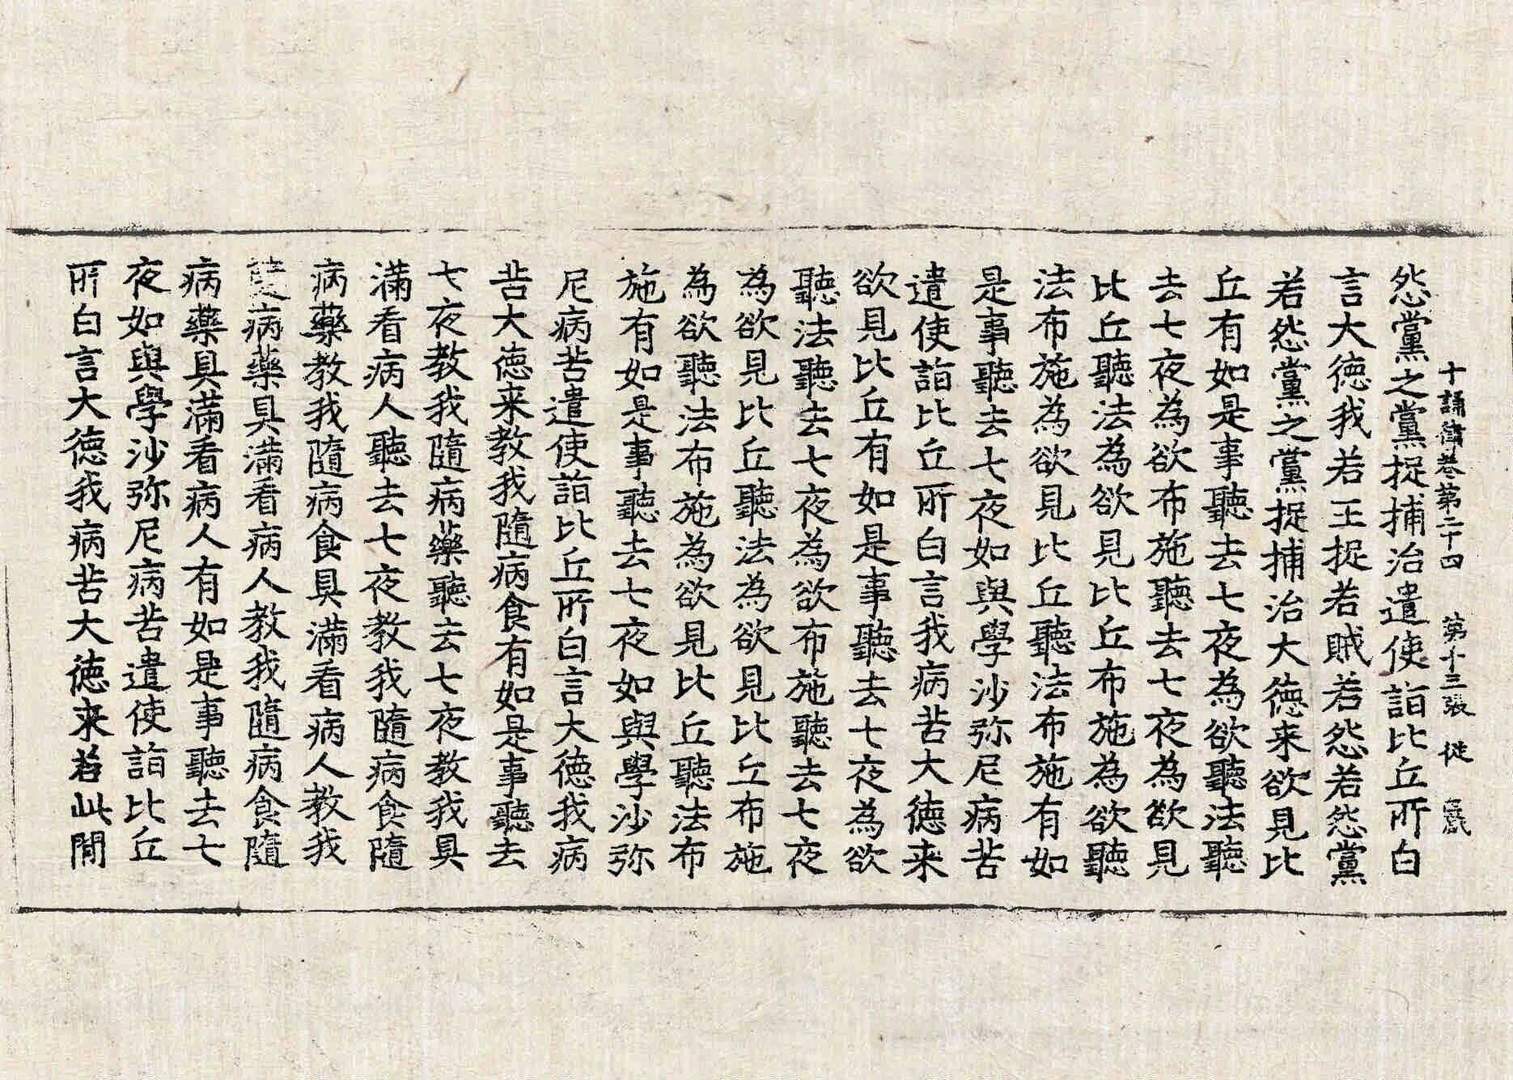 十誦律卷第二十四 第十三張 從
怨黨之黨捉捕治遣使詣比丘所白
言大徳我若王捉若賊若怨若怨黨
若怨黨之黨捉捕治大徳来欲見比
丘有如是事聽去七夜為欲聽法聽
去七夜為欲布施聽去七夜為欲見
比丘聽法為欲見比丘布施為欲聽
法布施為欲見比丘聽法布施有如
是事聽去七夜如與學沙弥尼病苦
遣使詣比丘所白言我病苦大徳来
欲見比丘有如是事聽去七夜為欲
聽法聽去七夜為欲布施聽去七夜
為欲見比丘聽法為欲見比丘布施
為欲聽法布施為欲見比丘聽法布
施有如是事聽去七夜如與學沙弥
尼病苦遣使詣比丘所白言大徳我病
苦大徳来教我隨病食有如是事聽去
七夜教我隨病藥聽去七夜教我具
滿看病人聽去七夜教我隨病食隨
病藥教我隨病食具滿看病人教我
隨病藥具滿看病人教我隨病食隨
病藥具滿看病人有如是事聽去七
夜如與學沙弥尼病苦遣使詣比丘
所白言大徳我病苦大徳来若此閒